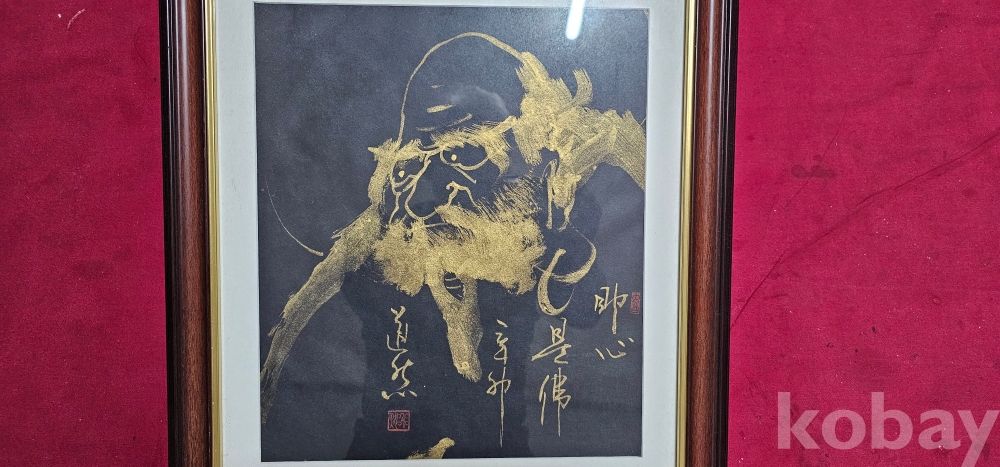 即心
是佛
辛卯
道然
kobay